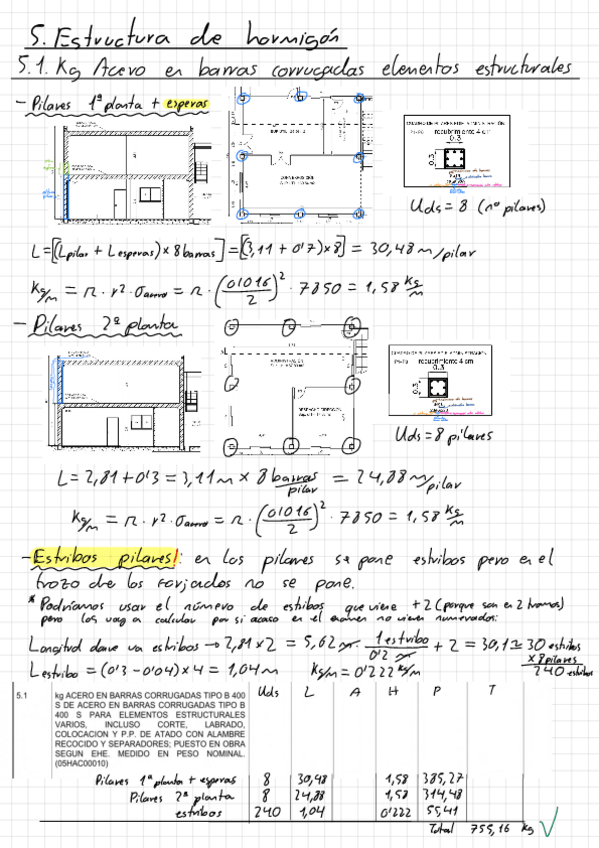 5. Estructura de hormigón
5.1. Kg Acero en barras corrugadas elementos estructurales
- Pilares 1ª planta + esperas
recubrimiento 4 cm
0.3
0.3
Uds = 8 (nº pilares)
L = [(Lpilar + Lesperas) x 8 barras] = [(3,11 + 0'7) x 8] = 30,48 m/pilar
Kg/m = π · r² · σacero = π · (0'016/2)² · 7850 = 1,58 Kg/m
- Pilares 2ª planta
recubrimiento 4 cm
0.3
0.3
DESPACHO DIRECCION
Uds = 8 pilares
L = 2,81 + 0'3 = 3,11 m x 8 barras/pilar = 24,88 m/pilar
Kg/m = π · r² · σacero = π · (0'016/2)² · 7850 = 1,58 Kg/m
- Estribos pilares!: en los pilares se pone estribos pero en el
trozo de los forjados no se pone.
* Podríamos usar el número de estribos que viene +2 (porque son en 2 tramos)
pero los voy a calcular por si acaso en el examen no vienen numerados:
Longitud donde va estribos → 2,81 x 2 = 5,62 m · 1 estribo/0'2 m + 2 = 30,1 ≃ 30 estribos
x 8 pilares
240 estribos
Lestribo = (0'3 - 0'04) x 4 = 1,04 m Kg/m = 0'222 kg/m
5.1 kg ACERO EN BARRAS CORRUGADAS TIPO B 400 Uds L A H P T
S DE ACERO EN BARRAS CORRUGADAS TIPO B
400 S PARA ELEMENTOS ESTRUCTURALES
VARIOS, INCLUSO CORTE, LABRADO,
COLOCACION Y P.P. DE ATADO CON ALAMBRE
RECOCIDO Y SEPARADORES; PUESTO EN OBRA
SEGUN EHE. MEDIDO EN PESO NOMINAL.
(05HAC00010)
Pilares 1ª planta + esperas 8 30,48 1,58 385,27
Pilares 2ª planta 8 24,88 1,58 314,48
estribos 240 1,04 0'222 55,41
Total 755,16 Kg